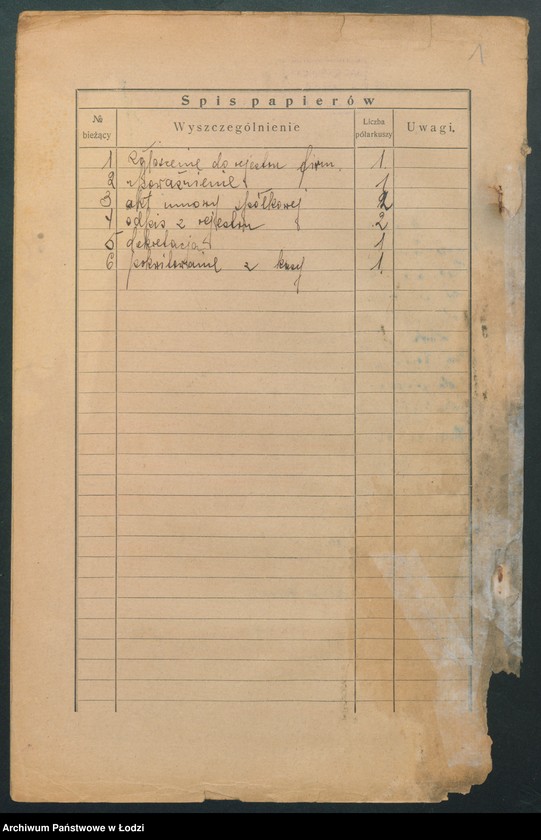 1
Spis papierów
№ bieżący Wyszczególnienie Liczba półarkuszy Uwagi.
1 zgłoszenie do rejestru firm. 1
2 upoważnienie 1
3 akt umowy spółkowej 2
4 odpis z rejestru 2
5 deklaracja 1
6 pokwitowanie z kasy 1
Archiwum Państwowe w Łodzi